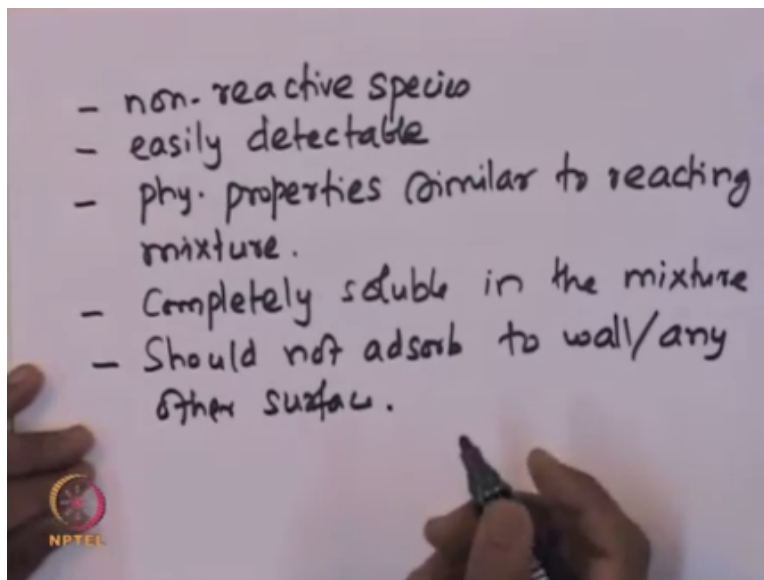 - non-reactive species
- easily detectable
- phy. properties similar to reacting
mixture.
- Completely soluble in the mixture
- Should not adsorb to wall/any
other surface.
NPTEL